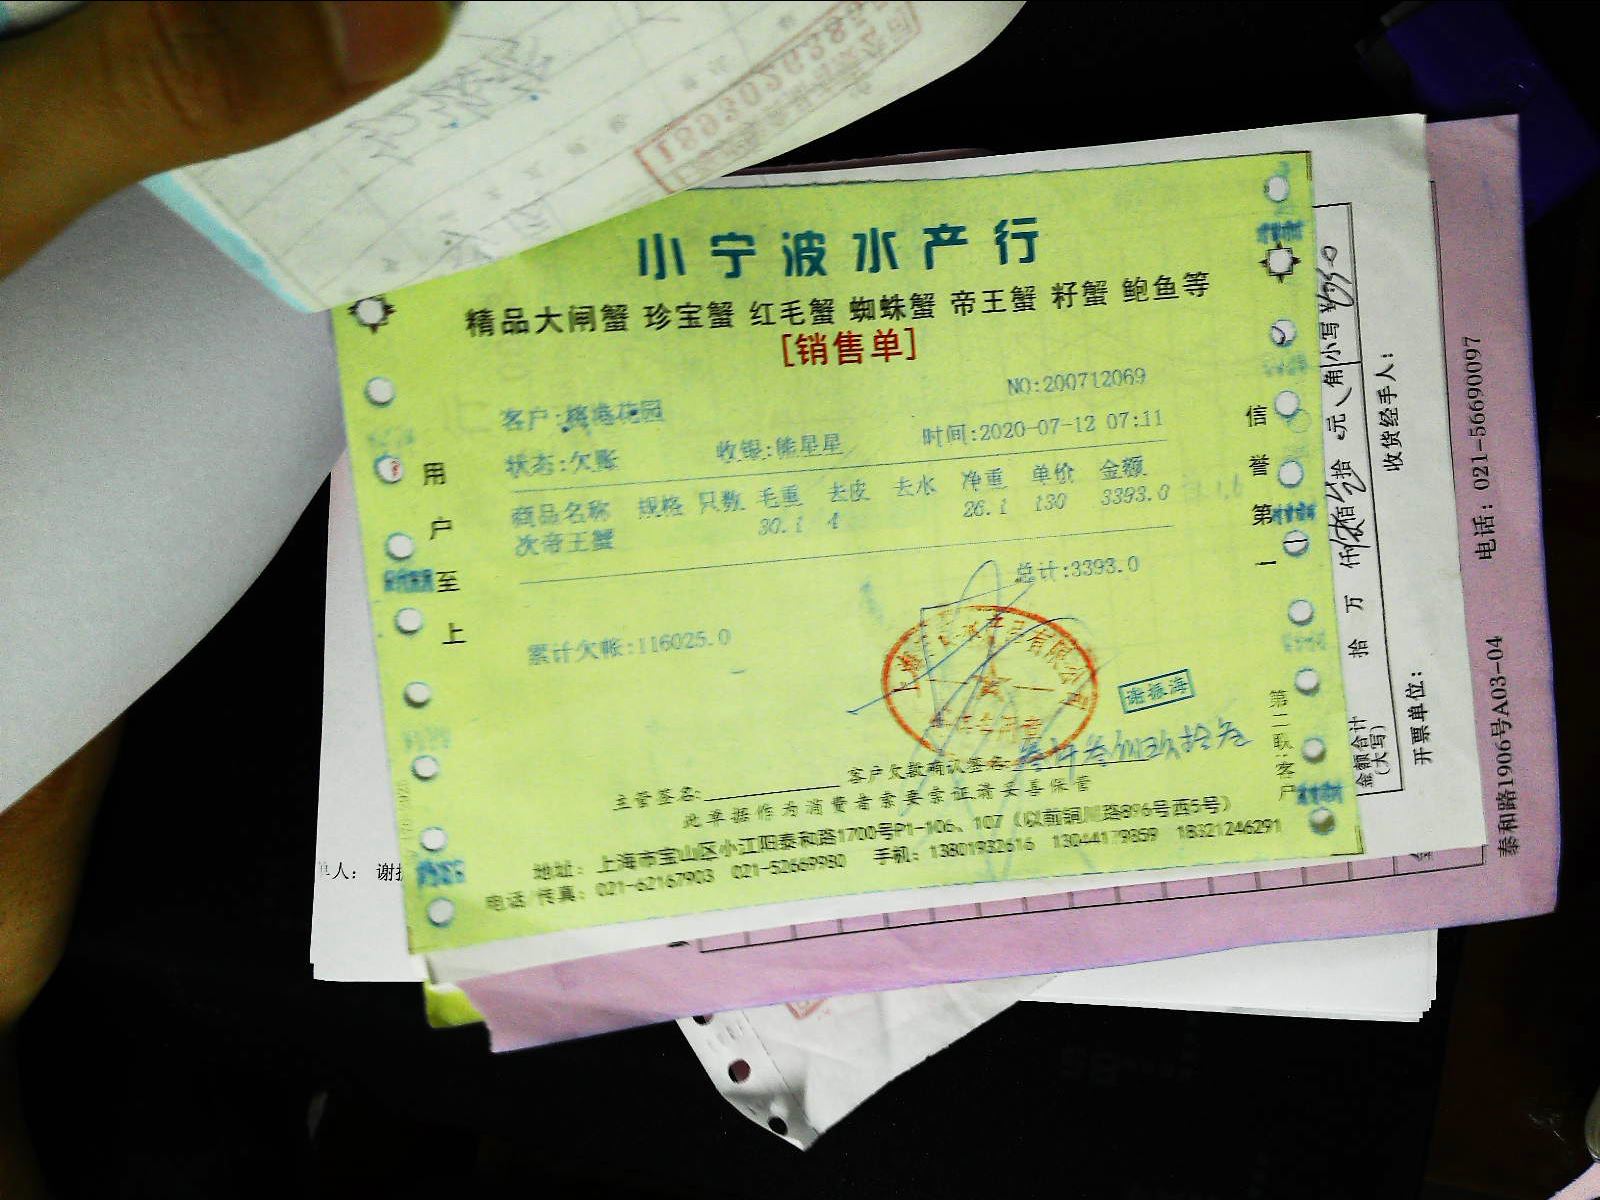 18930263857
小宁波水产行
精品大闸蟹 珍宝蟹 红毛蟹 蜘蛛蟹 帝王蟹 籽蟹 鲍鱼等
[销售单]
NO:200712069
客户:
花园
状态:欠账 收银:熊星星 时间:2020-07-12 07:11
商品名称 规格 只数 毛重 去皮 去水 净重 单价 金额
次帝王蟹 30.1 4 26.1 130 3393.0
总计:3393.0
累计欠帐:116025.0
用户至上
信誉第一
第二联客户
谢振海
叁仟叁佰玖拾叁
主管签名: 客户欠款确认签名:
此单据作为消费者索要索证请妥善保管
地址: 上海市宝山区小江阳泰和路1700号P1-106、107（以前铜川路896号西5号）
电话/传真: 021-62167903 021-52669980 手机: 13801932616 13044179859 18321246291
单人: 谢振
金额合计
(大写)
拾 万 仟 佰 拾 元 角 小写
开票单位:
收货经手人:
泰和路1906号A03-04 电话: 021-56690097